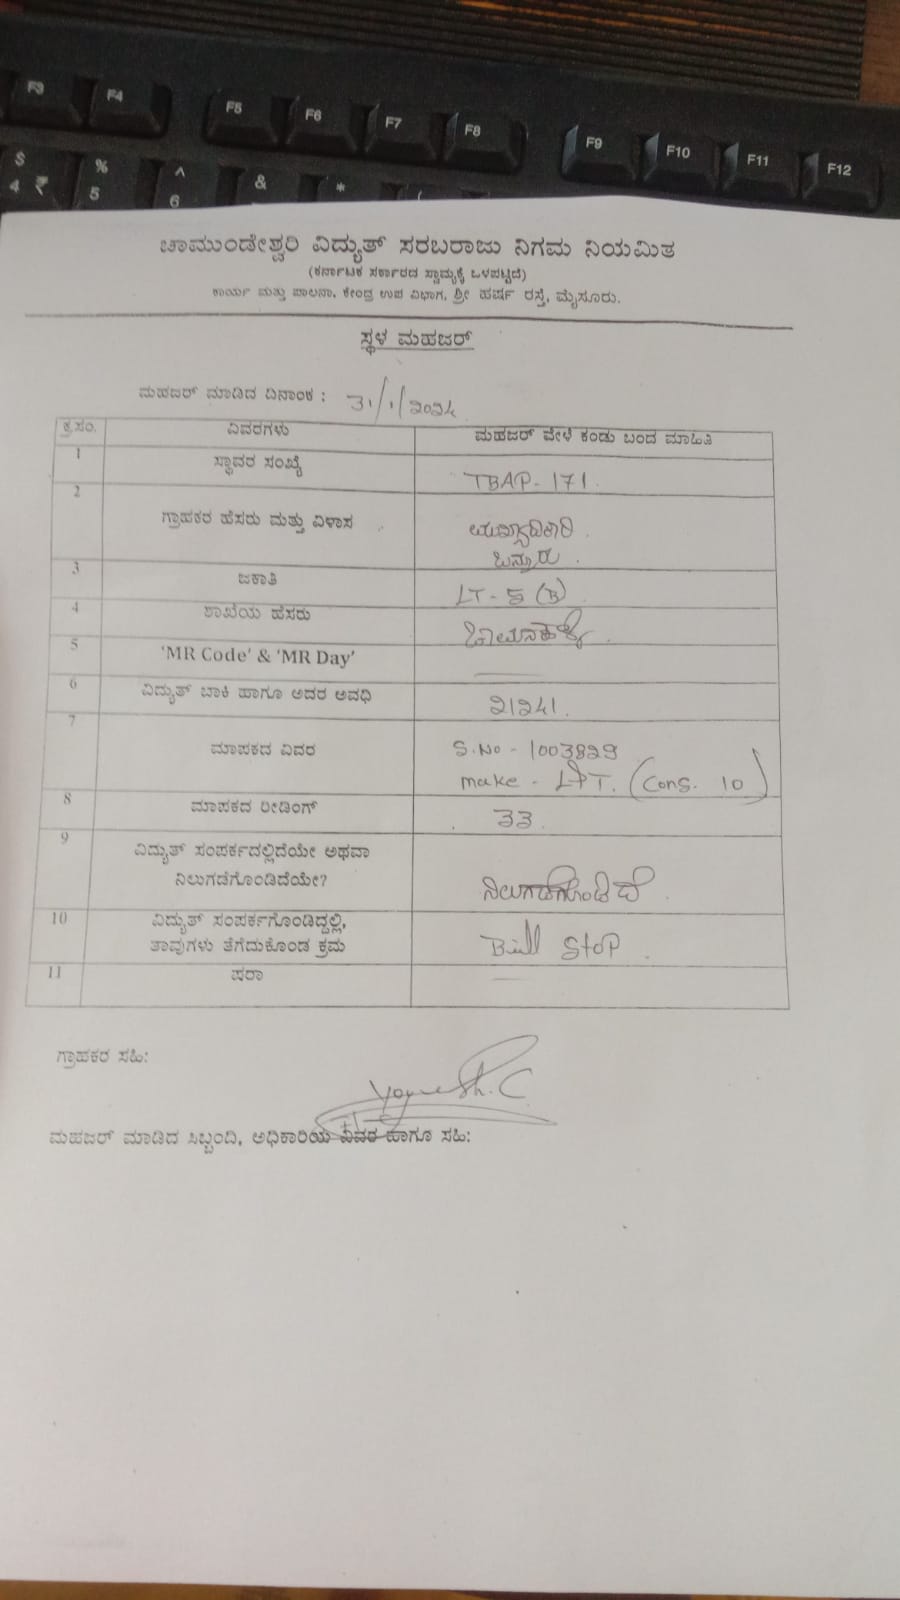 F3 F4 F5 F6 F7 F8 F9 F10 F11 F12
$ % ^ & * (
4 ₹ 5 6
ಚಾಮುಂಡೇಶ್ವರಿ ವಿದ್ಯುತ್ ಸರಬರಾಜು ನಿಗಮ ನಿಯಮಿತ
(ಕರ್ನಾಟಕ ಸರ್ಕಾರದ ಸ್ವಾಮ್ಯಕ್ಕೆ ಒಳಪಟ್ಟಿದೆ)
ಕಾರ್ಯ ಮತ್ತು ಪಾಲನಾ, ಕೇಂದ್ರ ಉಪ ವಿಭಾಗ, ಶ್ರೀ ಹರ್ಷ ರಸ್ತೆ, ಮೈಸೂರು.
ಸ್ಥಳ ಮಹಜರ್
ಮಹಜರ್ ಮಾಡಿದ ದಿನಾಂಕ : 31/1/2024
ಕ್ರ.ಸಂ. ವಿವರಗಳು ಮಹಜರ್ ವೇಳೆ ಕಂಡು ಬಂದ ಮಾಹಿತಿ
1 ಸ್ಥಾವರ ಸಂಖ್ಯೆ TBAP-171
2 ಗ್ರಾಹಕರ ಹೆಸರು ಮತ್ತು ವಿಳಾಸ
3 ಜಕಾತಿ LT-5 (B)
4 ಶಾಖೆಯ ಹೆಸರು
5 'MR Code' & 'MR Day'
6 ವಿದ್ಯುತ್ ಬಾಕಿ ಹಾಗೂ ಅದರ ಅವಧಿ 21241
7 ಮಾಪಕದ ವಿವರ S.No - 1003829
make - L&T. (Cons. 10)
8 ಮಾಪಕದ ರೀಡಿಂಗ್ 33
9 ವಿದ್ಯುತ್ ಸಂಪರ್ಕದಲ್ಲಿದೆಯೇ ಅಥವಾ
ನಿಲುಗಡೆಗೊಂಡಿದೆಯೇ? ನಿಲುಗಡೆಗೊಂಡಿದೆ
10 ವಿದ್ಯುತ್ ಸಂಪರ್ಕಗೊಂಡಿದ್ದಲ್ಲಿ,
ತಾವುಗಳು ತೆಗೆದುಕೊಂಡ ಕ್ರಮ Bill Stop
11 ಷರಾ
ಗ್ರಾಹಕರ ಸಹಿ:
Yogesh.C
ಮಹಜರ್ ಮಾಡಿದ ಸಿಬ್ಬಂದಿ, ಅಧಿಕಾರಿಯ ವಿವರ ಹಾಗೂ ಸಹಿ: